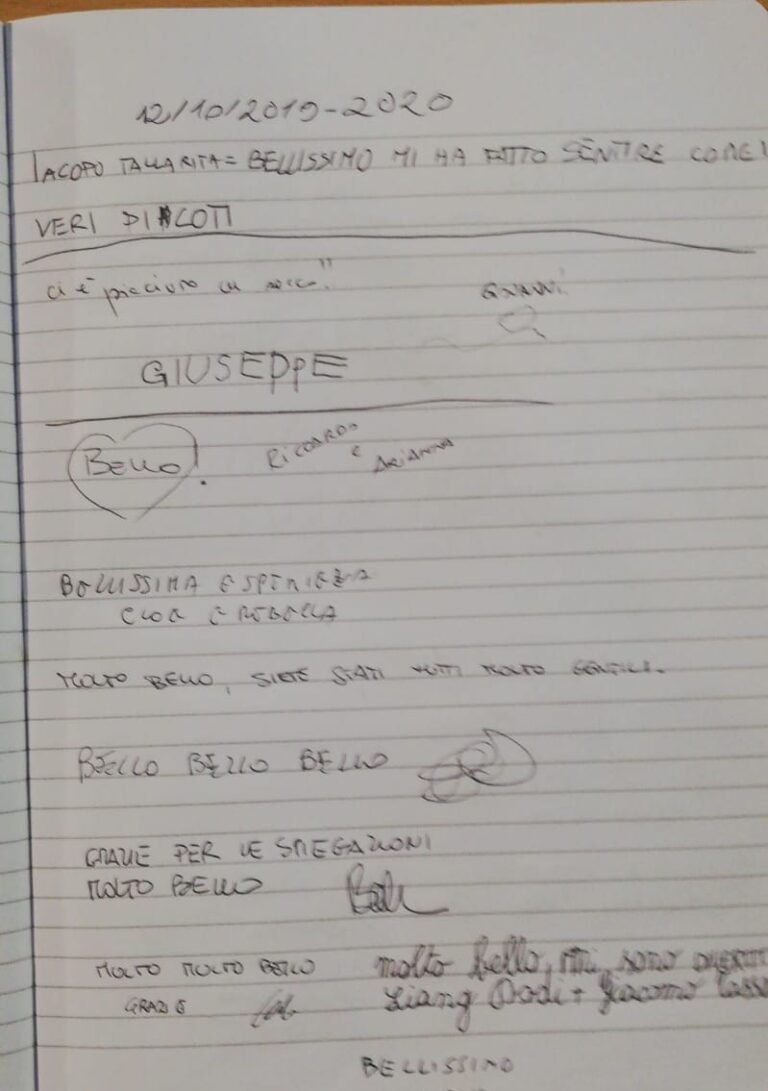 12/10/2019-2020
IACOPO TALLARITA = BELLISSIMO MI HA FATTO SENTIRE COME I
VERI PILOTI
ci è piaciuto
GIANNI
GIUSEPPE
BELLO!
RICCARDO
e
ARIANNA
BELLISSIMA ESPERIENZA
MOLTO BELLO, SIETE STATI TUTTI MOLTO GENTILI.
BELLO BELLO BELLO
GRAZIE PER LE SPIEGAZIONI
MOLTO BELLO
MOLTO MOLTO BELLO
molto bello, mi sono
GRAZIE
Liang Dodi + Giacomo
BELLISSIMO